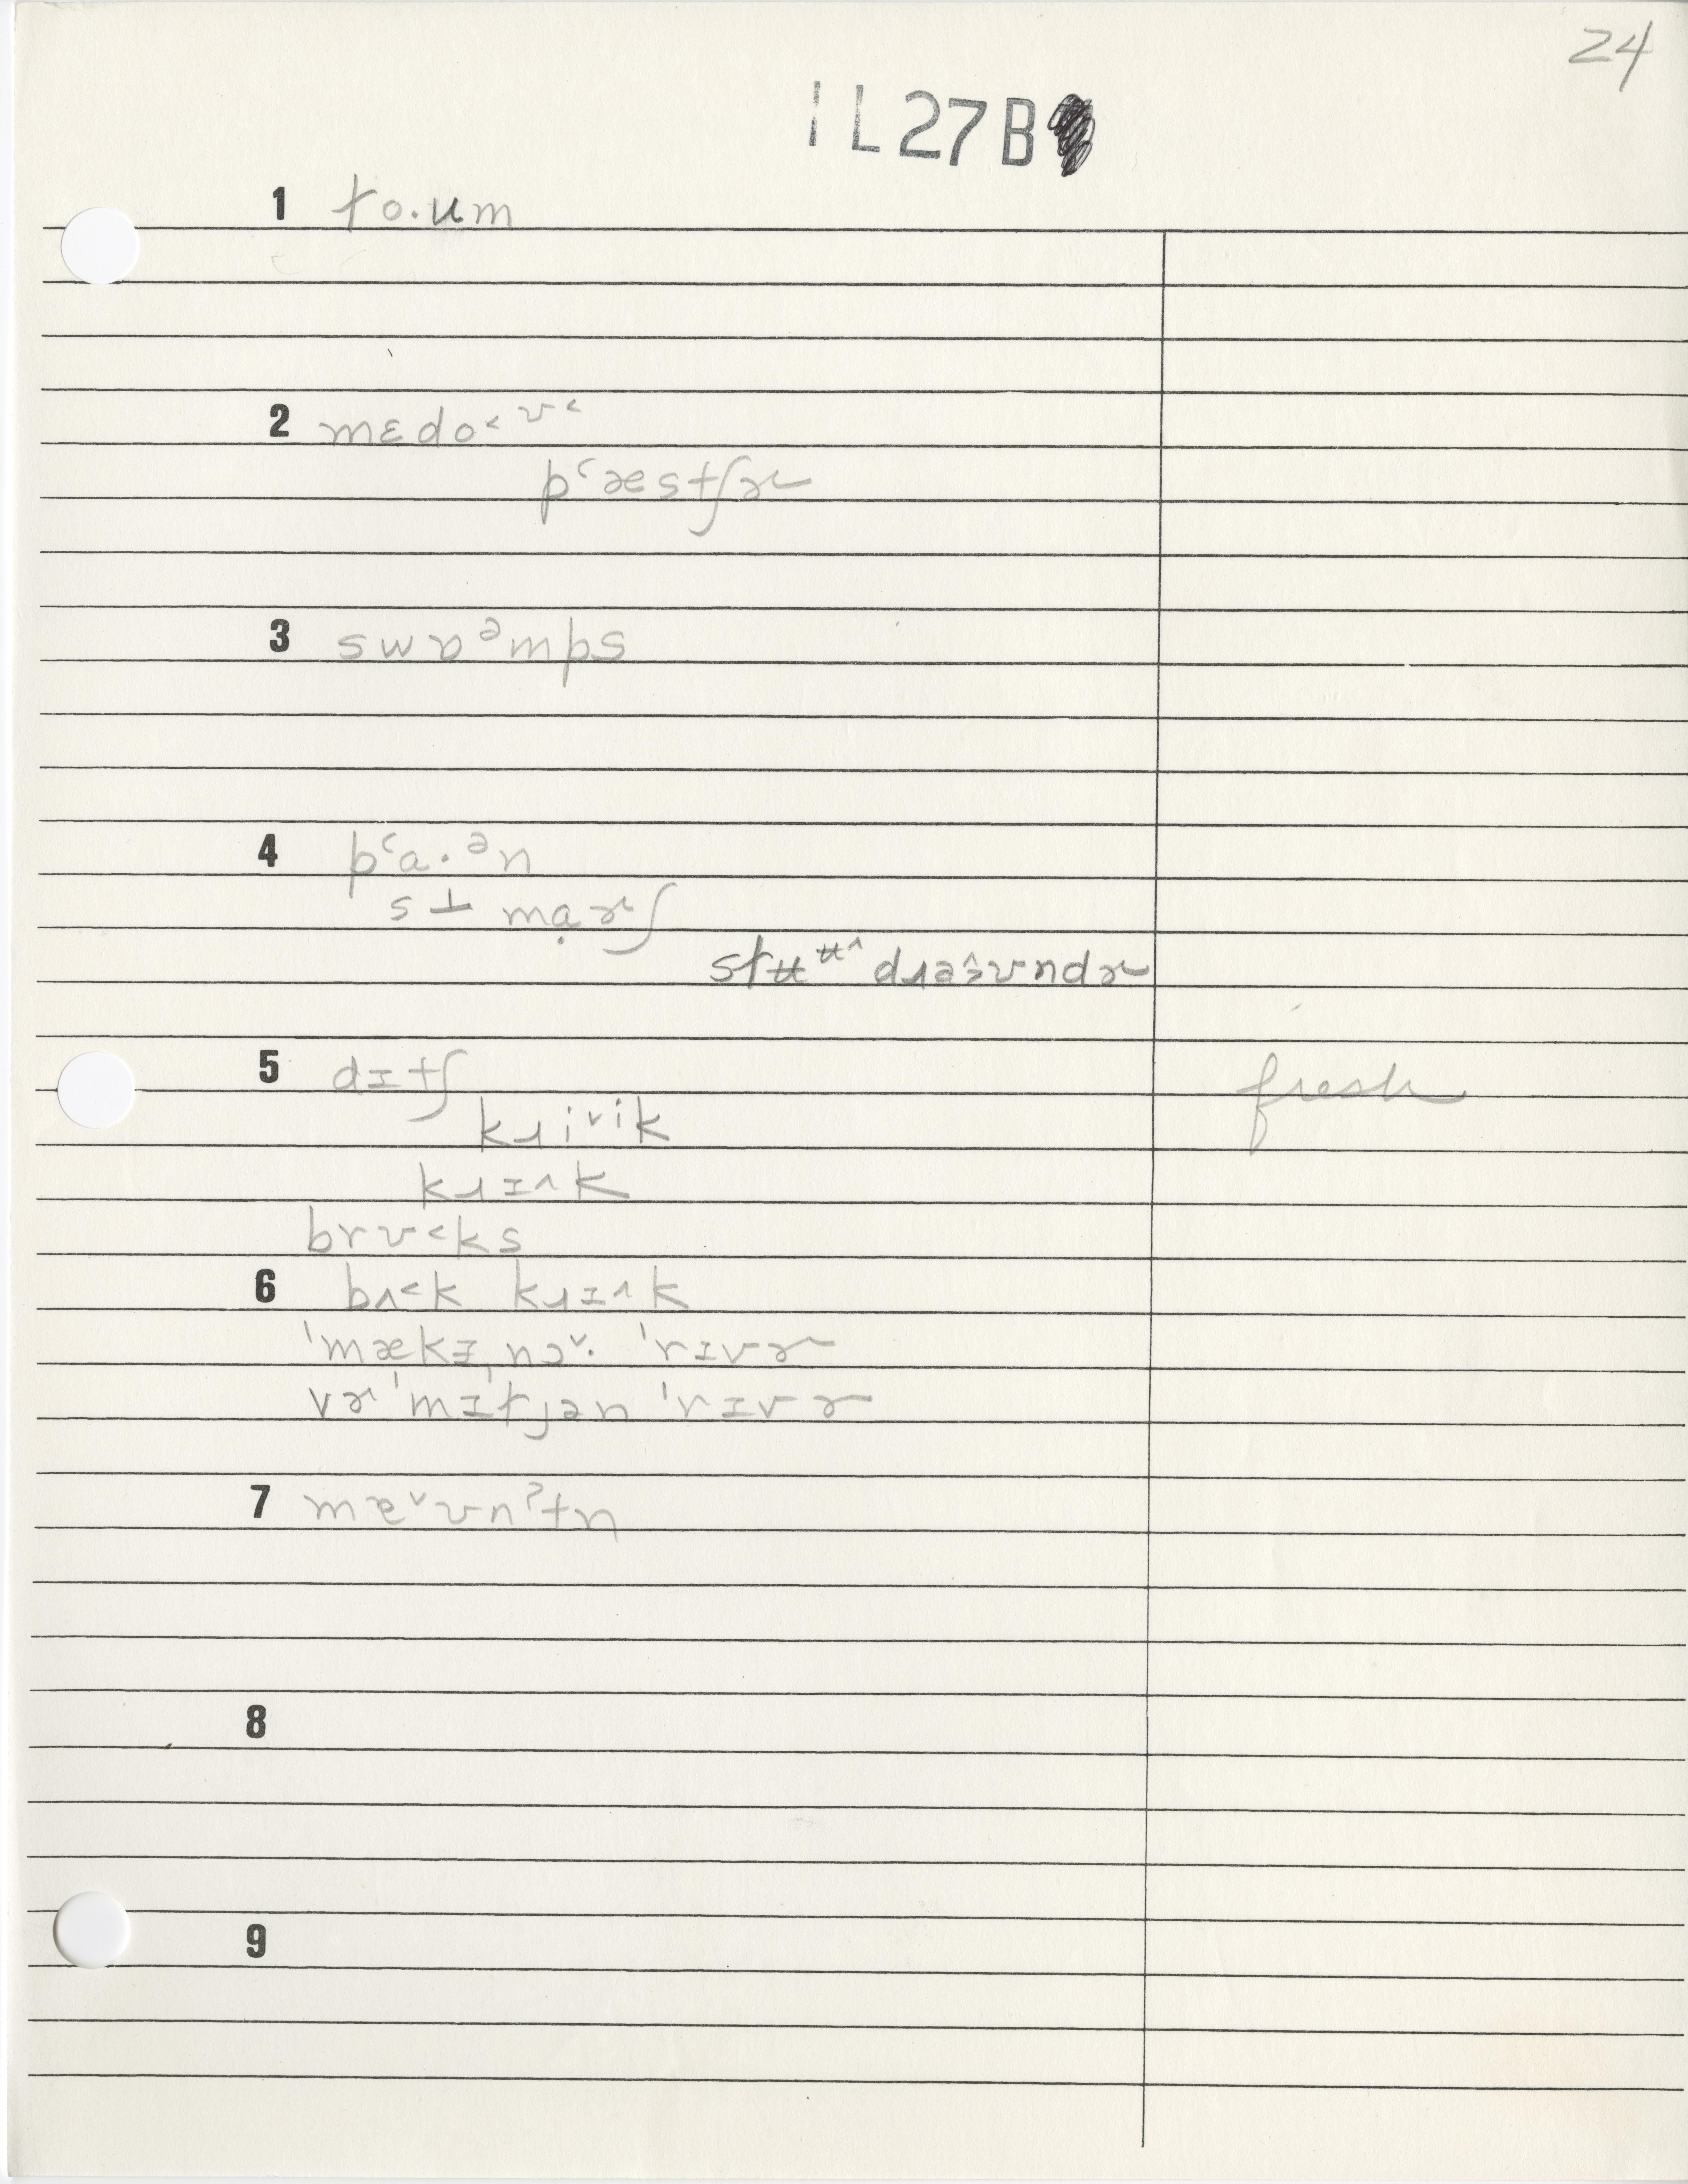 24
IL27B
1 t̬o.ʉm
2 mɛdo˂ʊ˂
pʻæstʃɚ
3 swɒᵊmps
4 pʻa.ᵊn
s⊥ mạɚʃ
stʉʉ^ dɹəʊndɚ
5 dɪtʃ
fresh
kɹiˇik
kɹɪ^k
brʊ˂ks
6 bʌ˂k kɹɪ^k
ˈmækɪˌnɔˇ. ˈrɪvɚ
vɚˈmɪt̬jən ˈrɪvɚ
7 mæˇʊnˀtn
8
9